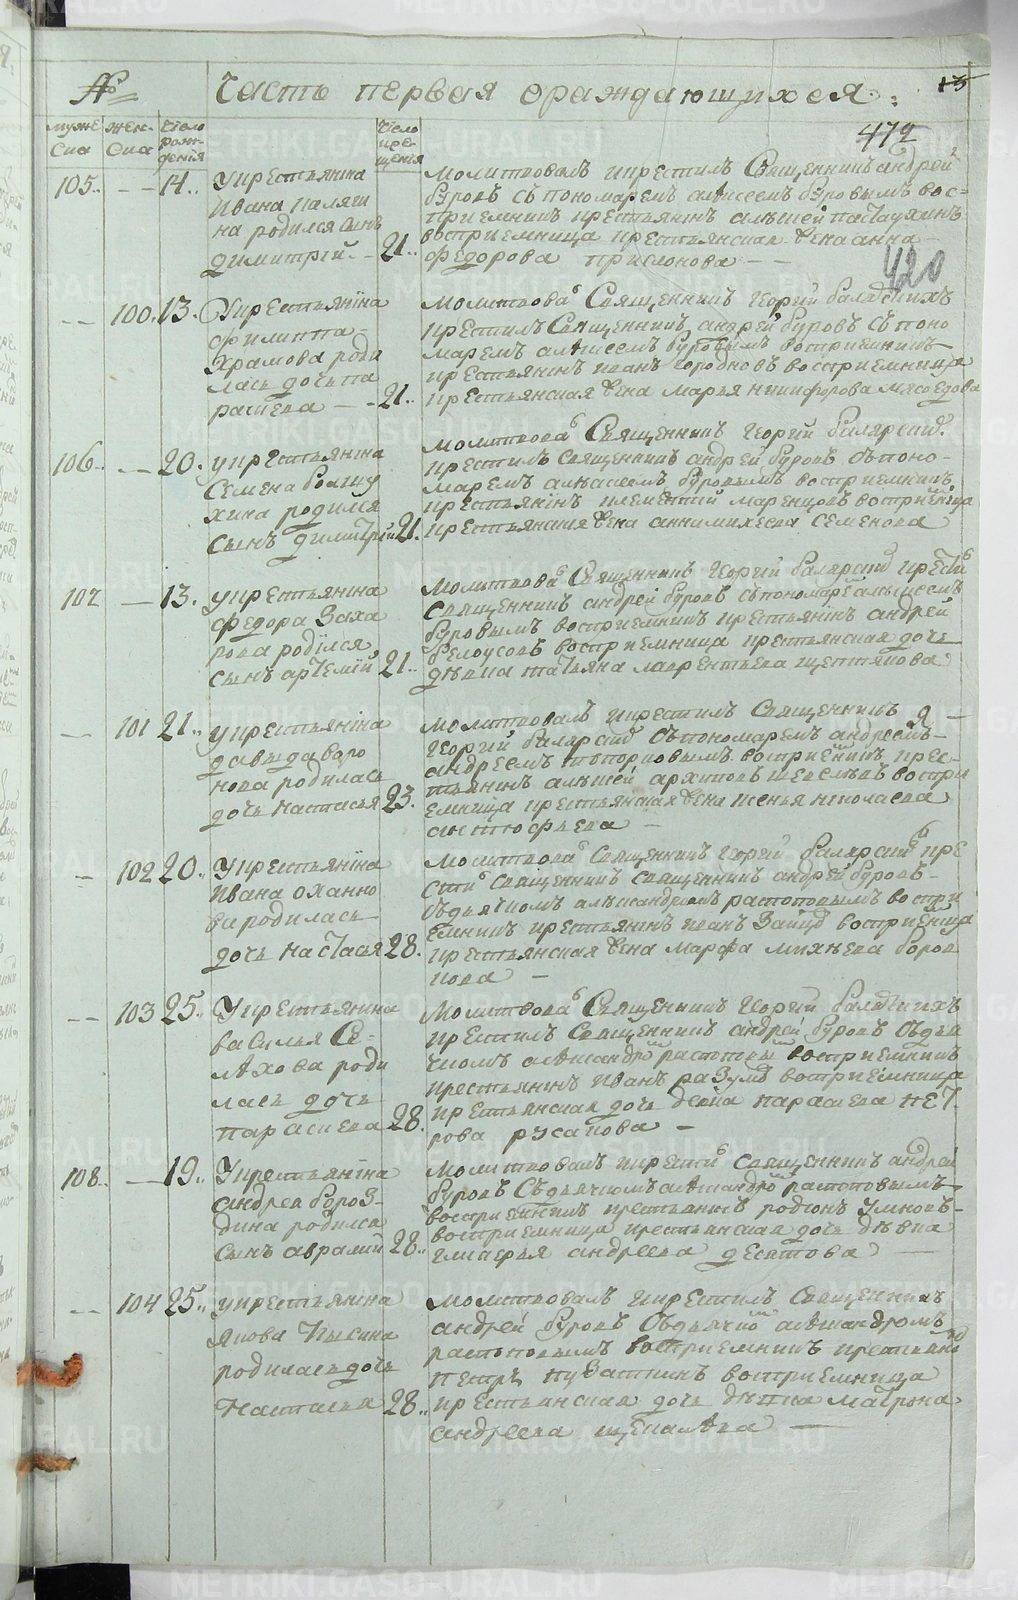 № Часть первая ораждающихся: 13
472
мужеска женска число рождения число крещения
420
105.. -- 14.. У крестьянина
Ивана Паляш
на родился сынъ
димитрей. -- 21..
молитвовалъ икрестилъ Священникъ андрей
буровъ съ пономаремъ алѣксеемъ буровымъ вос=
приемникъ крестьянинъ алѣксей пастухинъ
восприемница крестьянская жена анна
федорова --
-- 100. 13. Укрестьянина
филиппа
Храмова роди
лась дочь па
расκева -- 21..
молитвова Священникъ георгий
крестилъ Священникъ андрей буровъ съ поно
маремъ алѣксеемъ буровымъ восприемникъ
крестьянинъ иванъ восприемница
крестьянская жена марья никифорова мясоедова
106.. -- 20. укрестьянина
Семена
хина родился
сынъ димитрий 21.
молитвова Священникъ георгий
крестилъ священникъ андрей буровъ съ поно-
маремъ алѣксеемъ буровымъ восприемникъ
крестьянинъ восприемница
крестьянская жена семенова
107 -- 13. укрестьянина
федора Заха
рова родился
сынъ артемий 21..
молитвова Священникъ георгий крести
Священникъ андрей буровъ съ пономаре алѣксеемъ
буровымъ восприемникъ крестьянинъ андрей
белоусовъ восприемница крестьянская дочь
дѣвка татьяна лаврентьева
-- 101 21.. укрестьянина
давыда воро
нова родилась
дочь настасья 23.
молитвовалъ икрестилъ Священникъ
георгий съ пономаремъ андреемъ
андреемъ топорковымъ восприемникъ крес-
тьянинъ алѣксей архиповъ воспри
емница крестьянская жена ксенья николаева
-- 102 20.. Укрестьянина
Ивана оханно
ва родилась
дочь настасья 28.
молитвова священникъ георгий кре
сти священникъ священникъ андрей буровъ
съдьячкомъ алѣксандромъ растоповымъ воспри
емникъ крестьянинъ иванъ Зайцъ восприемница
крестьянская жена марфа михѣева боров
кова --
-- 103 25.. Укрестьянина
василья Се-
ляхова роди
лась дочь
параскева 28.
молитвова Священникъ георгий
крестилъ Священникъ андрей буровъ съдья
чкомъ алѣксандро растоповы восприемникъ
крестьянинъ иванъ разумъ восприемница
крестьянская дочь девка параскева пет
рова русакова --
108.. -- 19.. Укрестьянина
андрея бороз-
дина родился
сынъ аврамий 28..
молитвовалъ икрести священникъ андрей
буровъ Съдьячкомъ алѣксандро растоповымъ
восприемникъ крестьянинъ родионъ Умновъ-
восприемница крестьянская дочь дѣвка
гликерья андреева десятова --
-- 104 25.. укрестьянина
якова
родилась дочь
настасья 28..
молитвовалъ икрестилъ Священникъ
андрей буровъ Съдьячко алѣксандромъ
растоповымъ восприемникъ крестьянинъ
петръ пузаткинъ восприемница
крестьянская дочь дѣвка матрона
андреева --
METRIKI.GASO-URAL.RU